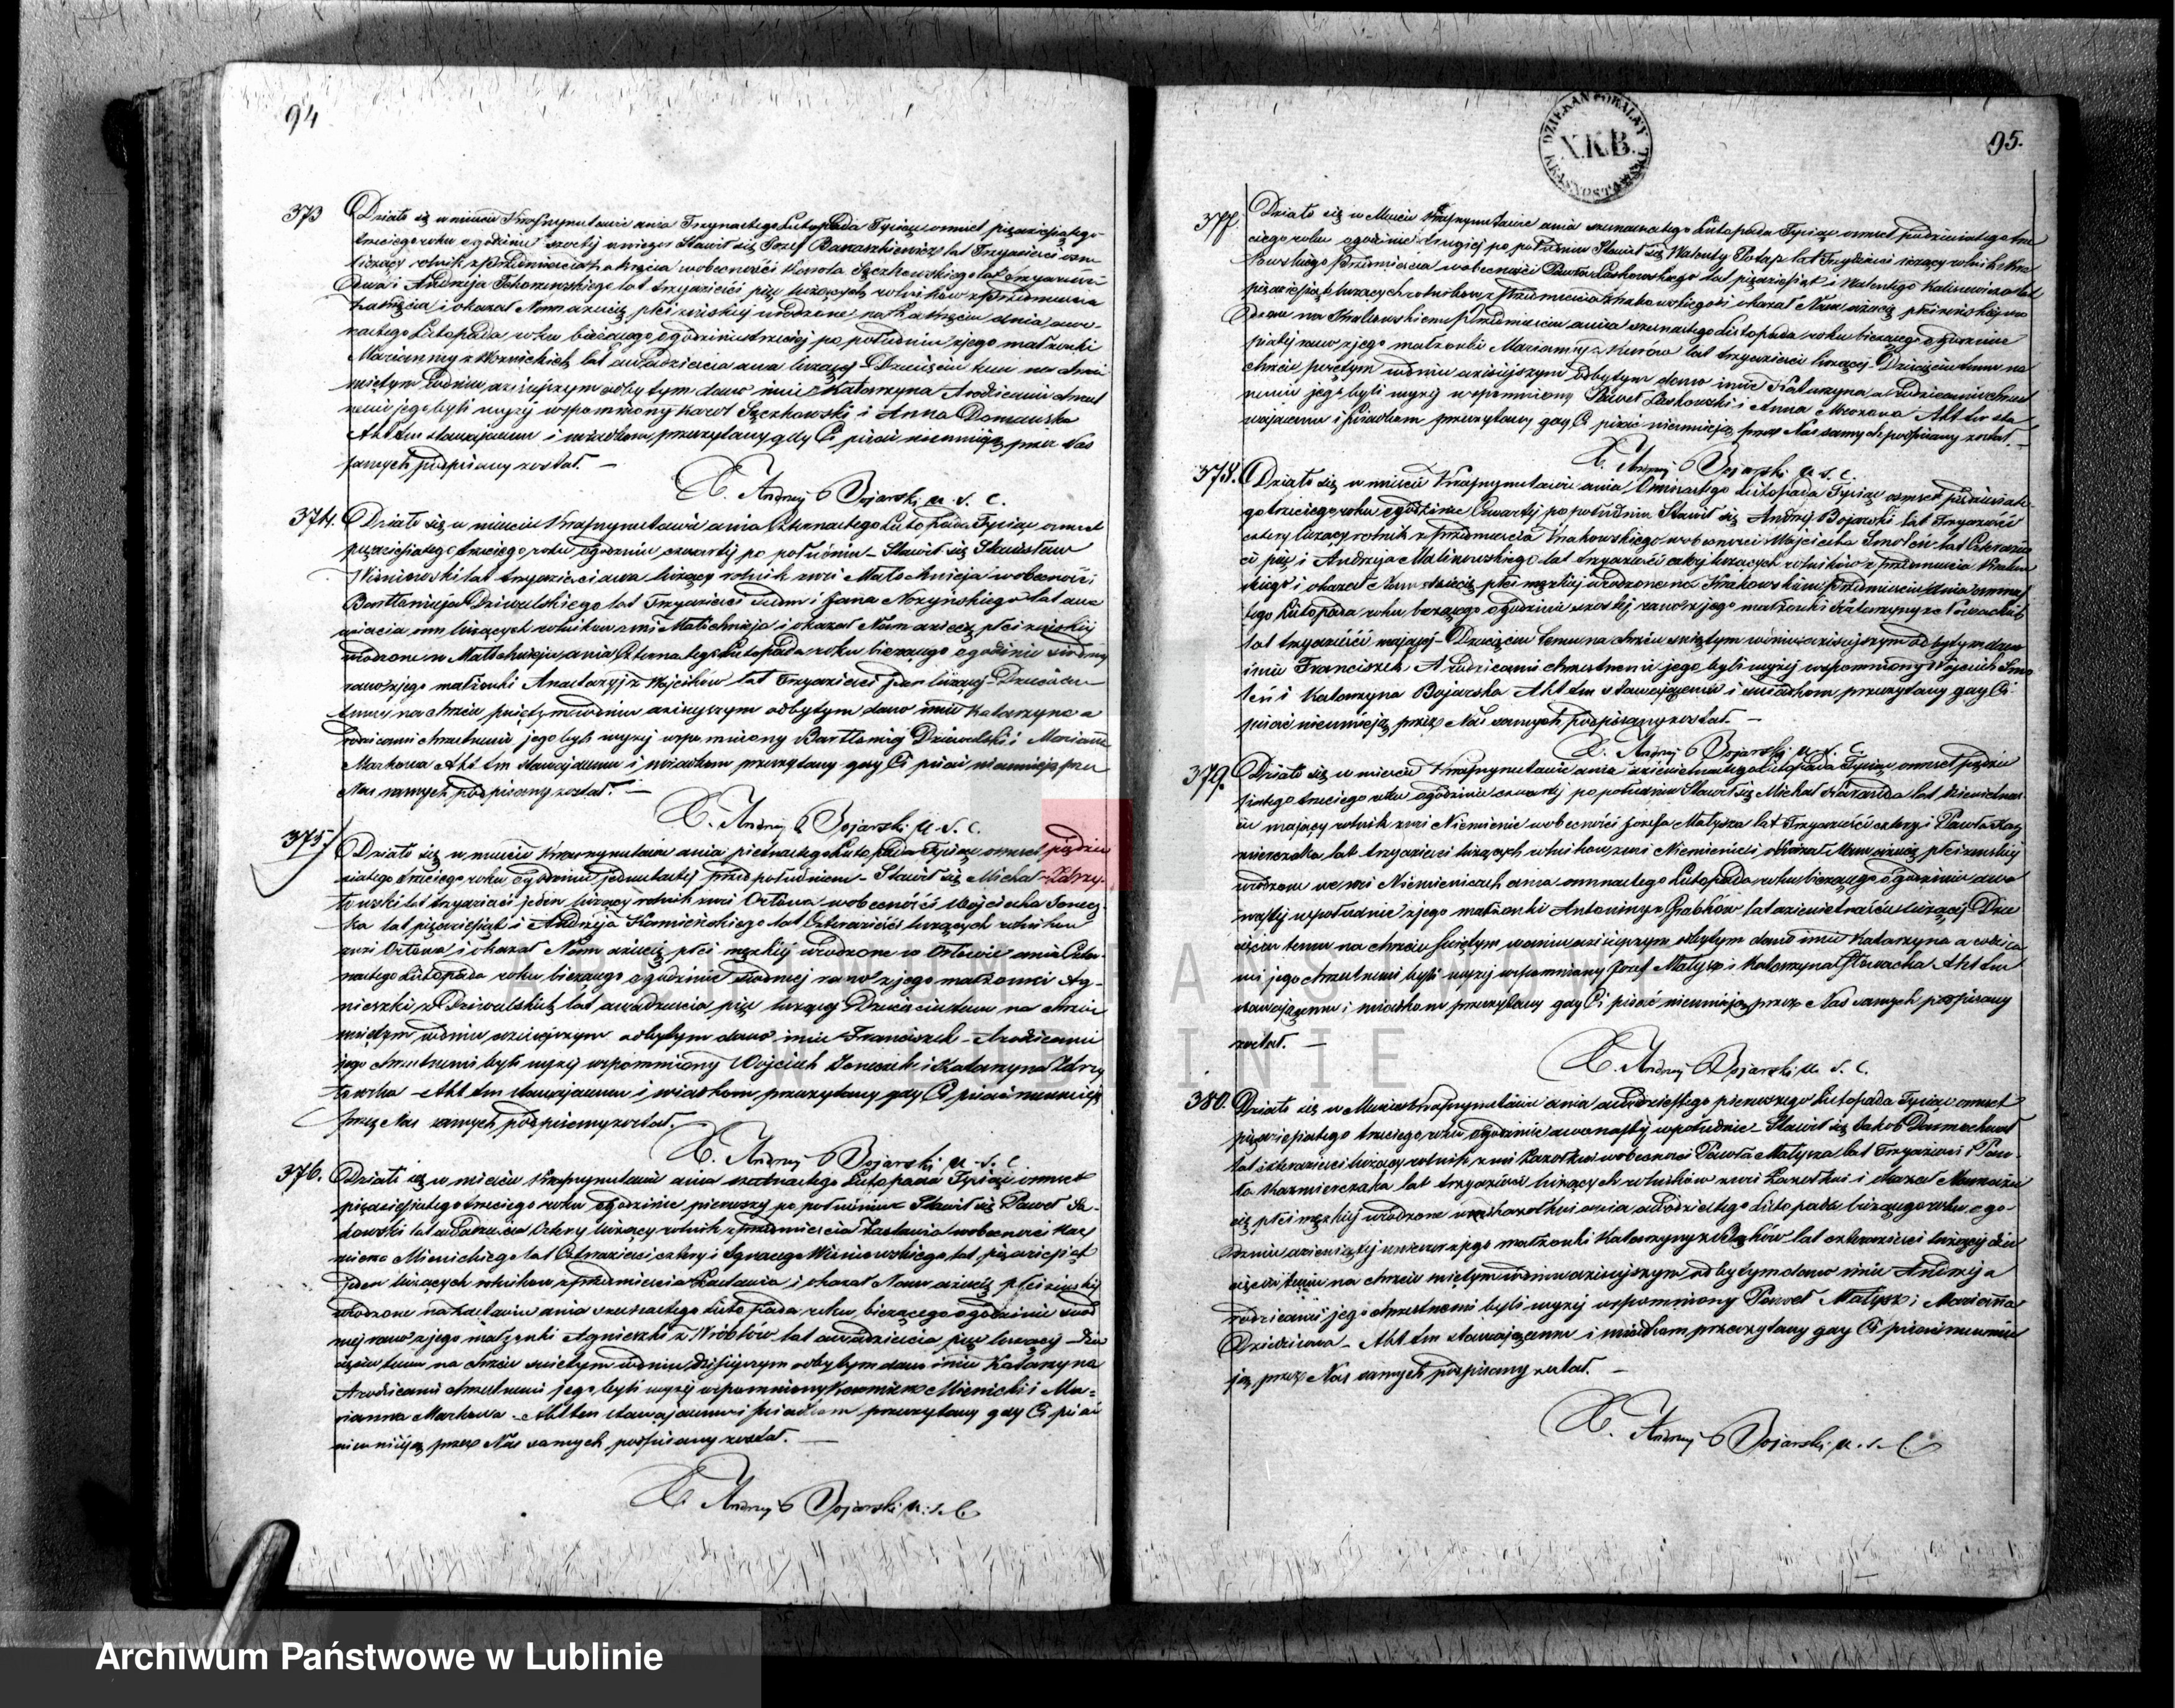 94
373 Działo się w mieście Krasnymstawie dnia Trzynastego Listopada Tysiąc osmset pięćdziesiątego
trzeciego roku o godzinie szóstej wieczór Stawił się Józef lat Trzydzieści osm
liczący rolnik z Przedmieścia Zakręcia w obecności Karola Sączkowskiego lat trzydzieści
dwa i Andrzeja lat trzydzieści pięć liczących rolników z Przedmieścia
Zakręcia i okazał Nam dziecię płci żeńskiej urodzone na Zakręciu dnia dwu-
nastego Listopada roku bieżącego o godzinie trzeciej po południu z jego małżonki
Marianny z Woźnickich lat dwadzieścia dwa liczącej Dziecięciu temu na chrzcie
świętym w dniu dzisiejszym odbytym dano imię Katarzyna A rodzicami chrzest
nemi jego byli wyżej wspomniony Karol Sączkowski i Anna Domańska
Akt ten stawającemu i świadkom przeczytany gdy Ci pisać nieumieją przez Nas
samych podpisany został. —
X. Andrzej Bojarski u. s. c.
374. Działo się w mieście Krasnymstawie dnia Czternastego Listopada Tysiąc osmset
pięćdziesiątego trzeciego roku o godzinie czwartej po południu – Stawił się Stanisław
Wiśniewski lat trzydzieści dwa liczący rolnik z wsi Małochwieja w obecności
Bartłomieja Dziwulskiego lat Trzydzieści siedm i Jana Nożyńskiego lat dwa
dzieścia osm liczących rolników z wsi Małochwieja i okazał Nam dziecię płci żeńskiej
urodzone w Małochwieju dnia Czternastego Listopada roku bieżącego o godzinie siódmej
rano z jego małżonki Anastazyi z Wójcików lat Trzydzieści jeden liczącej – Dziecięciu
temu na chrzcie świętym w dniu dzisiejszym odbytym dano imię Katarzyna a
rodzicami chrzestnemi jego byli wyżej wspomniony Bartłomiej Dziwulski i Marianna
Markowa Akt ten stawającemu i świadkom przeczytany gdy Ci pisać nieumieją przez
Nas samych podpisany został. —
X. Andrzej Bojarski u. s. c.
375. Działo się w mieście Krasnymstawie dnia piętnastego Listopada Tysiąc osmset pięćdzie
siątego trzeciego roku o godzinie jedenastej przed południem – Stawił się Michał Zdrzy-
towski lat trzydzieści jeden liczący rolnik z wsi Orłowa w obecności Wojciecha
lat pięćdziesiąt i Andrzeja Kamieńskiego lat Czterdzieści liczących rolników
z wsi Orłowa i okazał Nam dziecię płci męzkiej urodzone w Orłowie dnia Czter-
nastego Listopada roku bieżącego o godzinie siódmej rano z jego małżonki Ag-
nieszki z Dziwulskich lat dwadzieścia pięć liczącej Dziecięciu temu na chrzcie
świętym w dniu dzisiejszym odbytym dano imię Franciszek – A rodzicami
jego chrzestnemi byli wyżej wspomniony Wojciech i Katarzyna Zdrzy
towska – Akt ten stawającemu i świadkom przeczytany gdy Ci pisać nieumieją
przez Nas samych podpisany został.
X. Andrzej Bojarski u. s. c.
376. Działo się w mieście Krasnymstawie dnia szesnastego Listopada Tysiąc osmset
pięćdziesiątego trzeciego roku o godzinie pierwszej po południu Stawił się Paweł Sa-
dowski lat dwadzieścia Cztery liczący rolnik z Przedmieścia Zastawia w obecności Kazi
mierza Mienickiego lat Czterdzieści cztery i Ignacego Wiśniowskiego lat pięćdziesiąt
jeden liczących rolników z Przedmieścia Zastawia i okazał Nam dziecię płci żeńskiej
urodzone na Zastawiu dnia szesnastego Listopada roku bieżącego o godzinie siód
mej rano z jego małżonki Agnieszki z Wróblów lat dwadzieścia pięć liczącej – Dzie
cięciu temu na chrzcie świętym w dniu dzisiejszym odbytym dano imię Katarzyna
A rodzicami chrzestnemi jego byli wyżej wspomniony Kazimierz Mienicki i Ma-
rianna Markowa – Akt ten stawającemu i świadkom przeczytany gdy Ci pisać
nieumieją przez Nas samych podpisany został. —
X. Andrzej Bojarski u. s. c.
DZIEKAN FORALNY KRASNOSTAWSKI
X.K.B.
95.
377. Działo się w Mieście Krasnymstawie dnia szesnastego Listopada Tysiąc osmset pięćdziesiątego trze
ciego roku o godzinie drugiej po południu Stawił się Walenty Potap lat Trzydzieści liczący rolnik z Kra
kowskiego Przedmieścia w obecności Pawła Laskowskiego lat pięćdziesiąt i Walentego Kalinowicza lat
pięćdziesiąt liczących rolników z Przedmieścia Krakowskiego i okazał Nam dziecię płci żeńskiej uro
dzone na Krakowskiem Przedmieściu dnia szesnastego Listopada roku bieżącego o godzinie
piątej rano z jego małżonki Marianny z Kurów lat trzydzieści liczącej – Dziecięciu temu na
chrzcie świętym w dniu dzisiejszym odbytym dano imię Katarzyna a Rodzicami chrzest
nemi jego byli wyżej wspomniony Paweł Laskowski i Anna Mrozowa Akt ten sta
wającemu i świadkom przeczytany gdy Ci pisać nieumieją przez Nas samych podpisany został. –
X. Andrzej Bojarski u. s. c.
378. Działo się w mieście Krasnymstawie dnia Osmnastego Listopada Tysiąc osmset pięćdziesiąte
go trzeciego roku o godzinie Czwartej po południu Stawił się Andrzej Bojarski lat Trzydzieści
cztery liczący rolnik z Przedmieścia Krakowskiego w obecności Wojciecha Smoleń lat Czterdzie
ści pięć i Andrzeja Malinowskiego lat trzydzieści liczących rolników z Przedmieścia Krakow
skiego i okazał Nam dziecię płci męzkiej urodzone na Krakowskiem Przedmieściu dnia osmnas
tego Listopada roku bieżącego o godzinie szóstej rano z jego małżonki Katarzyny z Nowackich
lat trzydzieści mającej – Dziecięciu temu na chrzcie świętym w dniu dzisiejszym odbytym dano
imię Franciszek A rodzicami chrzestnemi jego byli wyżej wspomniony Wojciech Smo
leń i Katarzyna Bojarska Akt ten stawającemu i świadkom przeczytany gdy Ci
pisać nieumieją przez Nas samych podpisany został. —
X. Andrzej Bojarski u. s. c.
379. Działo się w mieście Krasnymstawie dnia dziewiętnastego Listopada Tysiąc osmset pięćdzie
siątego trzeciego roku o godzinie czwartej po południu Stawił się Michał lat dziewiętnaś
cie mający rolnik z wsi Niemienic w obecności Józefa Matysza lat Trzydzieści cztery i Pawła Kaź
mierczaka lat trzydzieści liczących rolników z wsi Niemienic i okazał Nam dziecię płci żeńskiej
urodzone we wsi Niemienicach dnia osmnastego Listopada roku bieżącego o godzinie dwu
nastej w południe z jego małżonki Antoniny z lat dziewiętnaście liczącej Dzie
cięciu temu na chrzcie świętym w dniu dzisiejszym odbytym dano imię Katarzyna a rodzica
mi jego chrzestnemi byli wyżej wspomniany Józef Matysz i Katarzyna Akt ten
stawającemu i świadkom przeczytany gdy Ci pisać nieumieją przez Nas samych podpisany
został. —
X. Andrzej Bojarski u. s. c.
380. Działo się w Mieście Krasnymstawie dnia dwudziestego pierwszego Listopada Tysiąc osmset
pięćdziesiątego trzeciego roku o godzinie dwunastej w południe – Stawił się Jakób
lat czterdzieści liczący rolnik z wsi w obecności Pawła Matysza lat Trzydzieści i Paw-
ła Kaźmierczaka lat trzydzieści liczących rolników z wsi i okazał Nam dzie
cię płci męzkiej urodzone dnia dwudziestego Listopada bieżącego roku o go-
dzinie dziewiątej z jego małżonki Katarzyny z lat czterdzieści liczącej dzie
cięciu temu na chrzcie świętym w dniu dzisiejszym odbytym dano imię Andrzej a
rodzicami jego chrzestnemi byli wyżej wspomniony Paweł Matysz i Marianna
Akt ten stawającemu i świadkom przeczytany gdy Ci pisać nieumie
ją przez Nas samych podpisany został. —
X. Andrzej Bojarski u. s. c.
Archiwum Państwowe w Lublinie